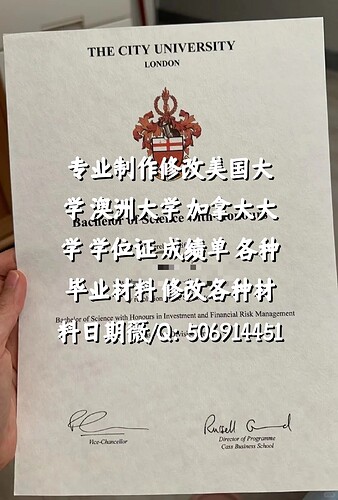 THE CITY UNIVERSITY
LONDON
专业制作修改美国大
学 澳洲大学 加拿大大
Bachelor of Science with Honours
学 学位证 成绩单 各种
毕业材料 修改各种材
Bachelor of Science with Honours in Investment and Financial Risk Management
料日期微/Q: 506914451
Vice-Chancellor
Director of Programme
Cass Business School